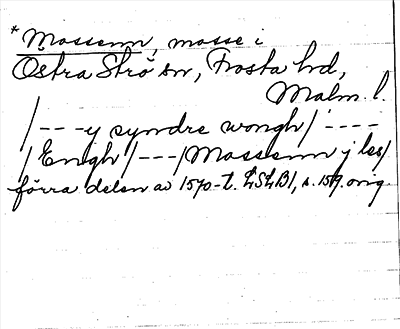 *Mossenn, mosse i
Östra Strö sn, Frosta hd,
Malm. l.
/---y syndre wongh/ ----
/Engh/---/Mossenn j lss/
förra delen av 1570-t. LSLB1, s. 159. orig.